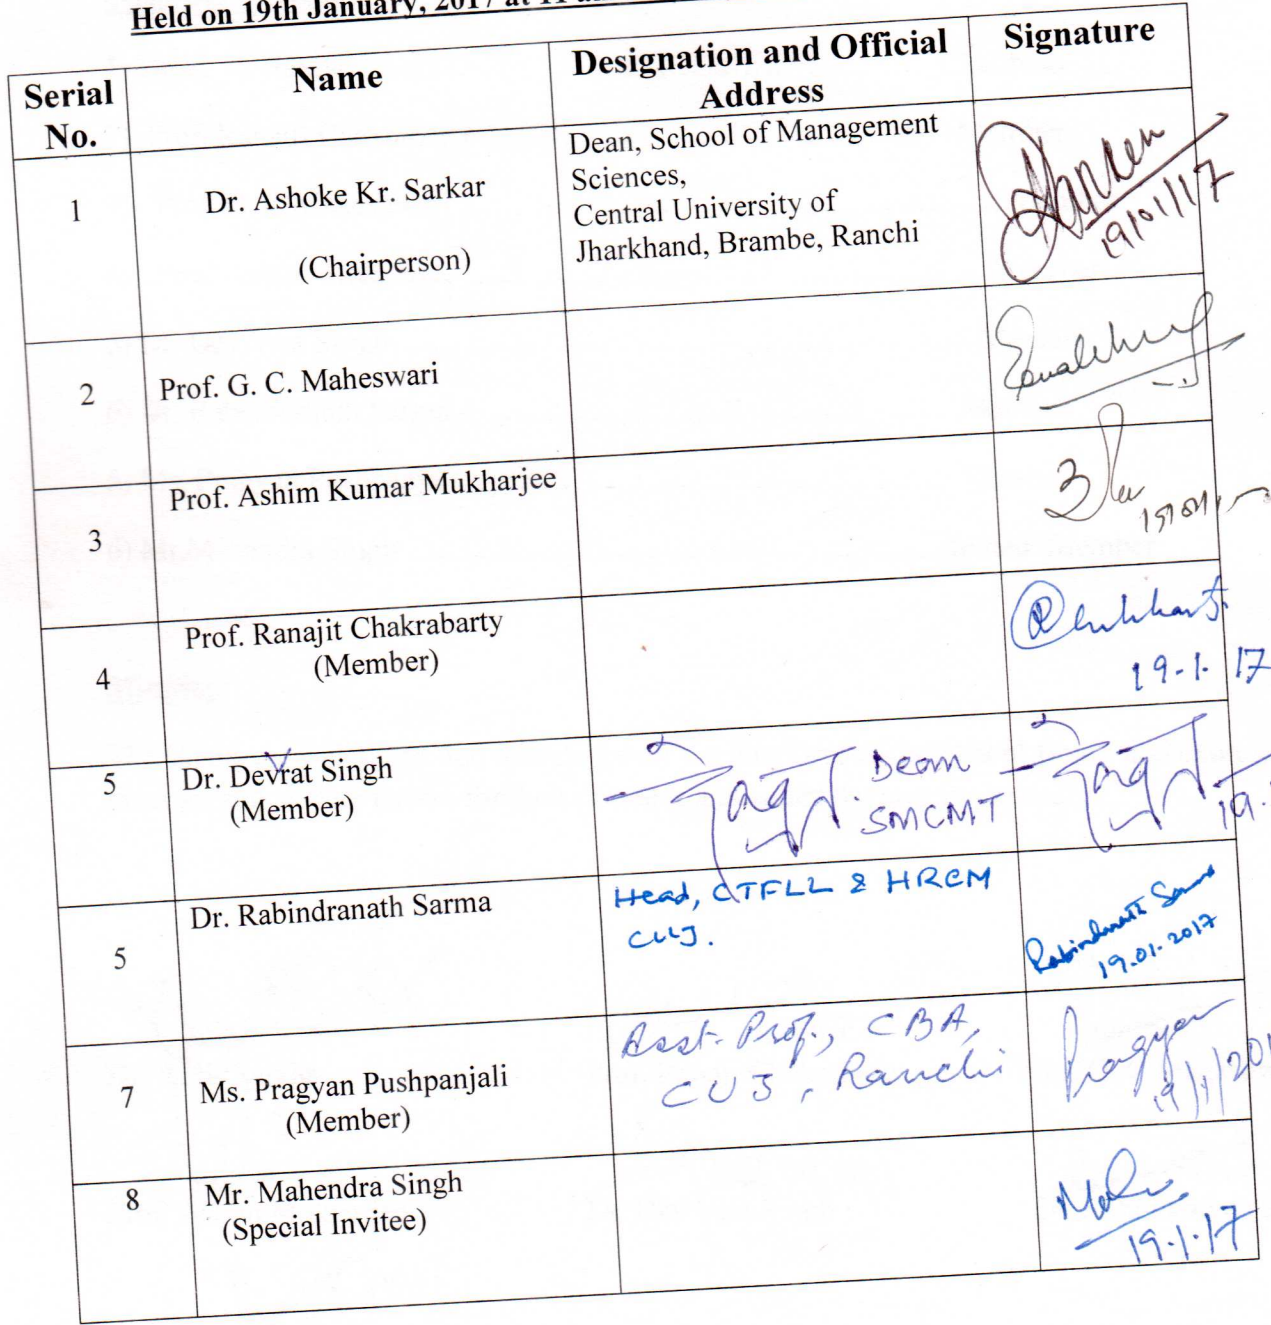 Held on 19th January, 2017 at 11
Serial No.
Name
Designation and Official Address
Signature
1
Dr. Ashoke Kr. Sarkar
(Chairperson)
Dean, School of Management
Sciences,
Central University of
Jharkhand, Brambe, Ranchi
19/01/17
2
Prof. G. C. Maheswari
3
Prof. Ashim Kumar Mukharjee
4
Prof. Ranajit Chakrabarty
(Member)
19-1-17
5
Dr. Devrat Singh
(Member)
देवव्रत Dean
SMCMT
देवव्रत
19.
5
Dr. Rabindranath Sarma
Head, CTFLL & HRCM
CUJ.
Rabindranath Sarma
19.01.2017
7
Ms. Pragyan Pushpanjali
(Member)
Asst. Prof., CBA,
CUJ, Ranchi
Pragyan
19/1/201
8
Mr. Mahendra Singh
(Special Invitee)
19.1.17